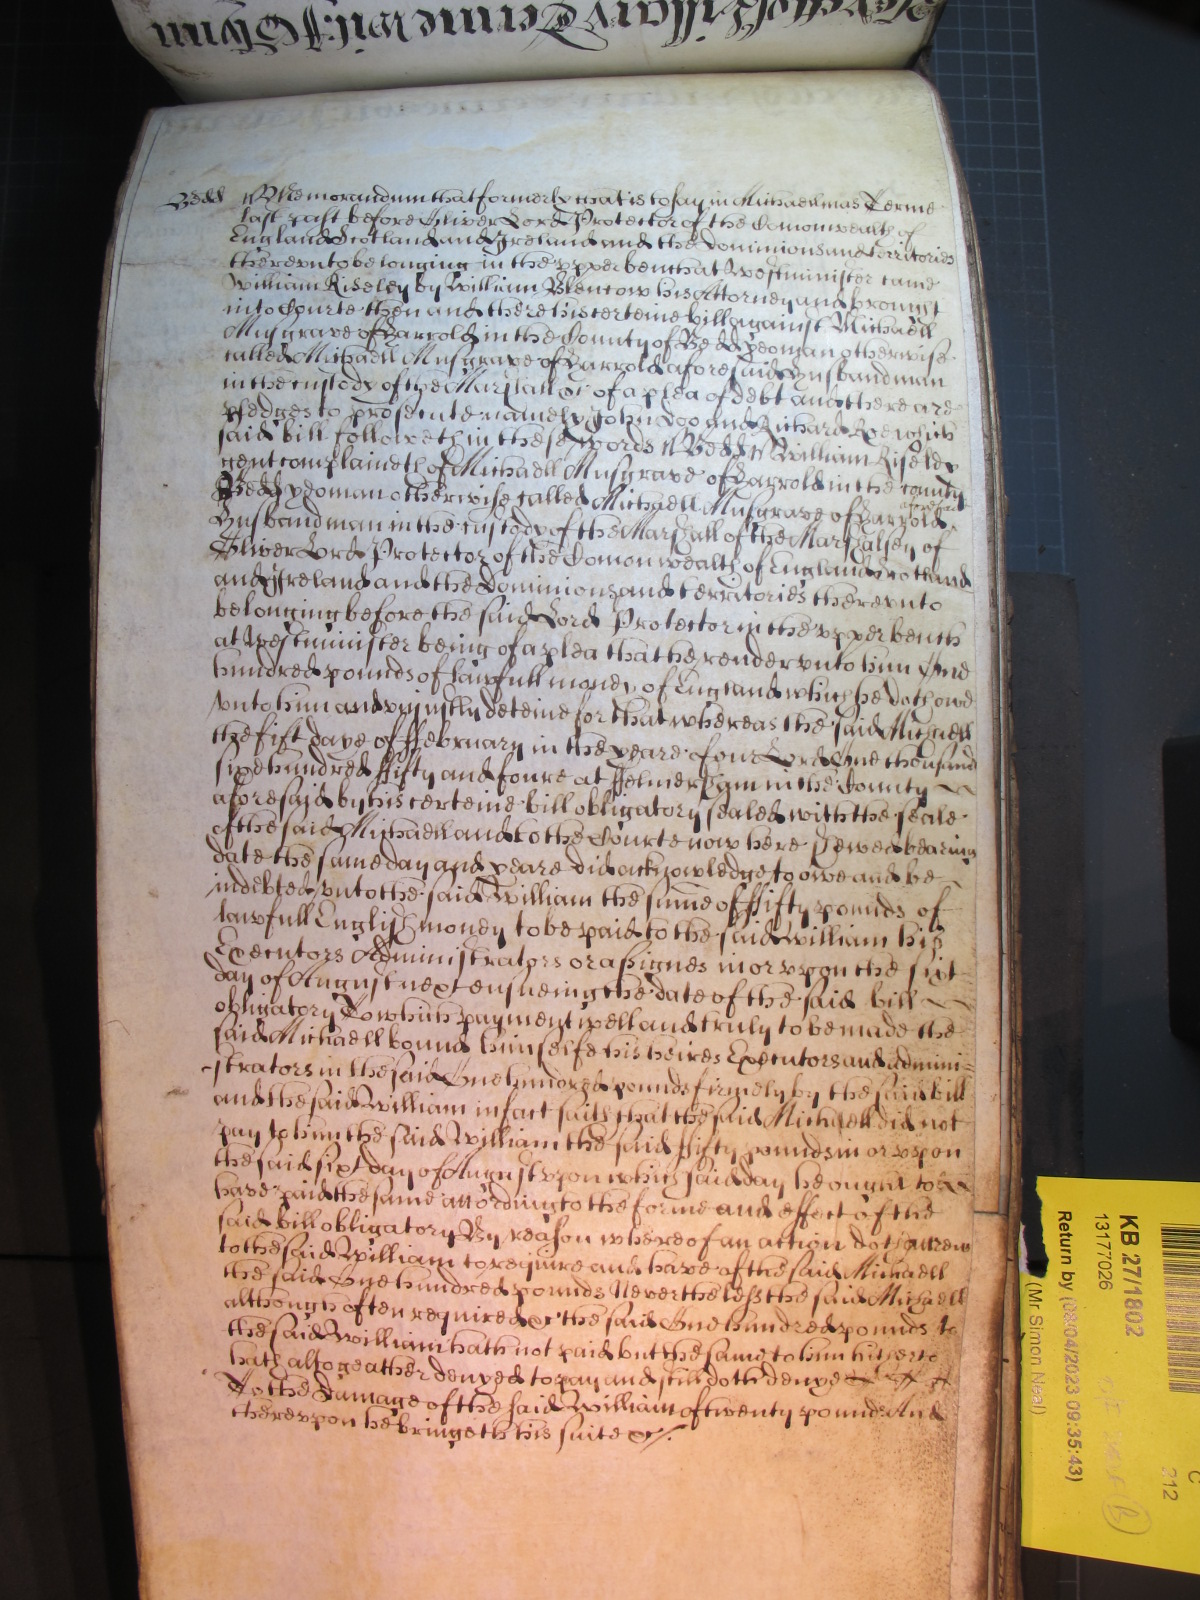 Bedd
Memorandum that formerly that is to say in Michaelmas Terme
last past before Oliver Lord Protector of the Comonwealth of
England Scotland and Ireland and the dominions and territories
therevnto belonging in the vpper bench at Westminister came
William Riseley by William Blencow his Attorney and brought
into Courte then and there his certeine bill against Michaell
Musgrave of Harrold in the County of Bedd yeoman otherwise
called Michaell Musgrave of Harrold aforesaid Husbandman
in the custody of the Marshall &c of a plea of debt and there are
pledges to prosecute namely John Doo and Richard Roe which
said bill followeth in these words ss Bedd ss William Riseley
gent complaineth of Michaell Musgrave of Harrold in the county
Bedd yeoman otherwise called Michaell Musgrave of Harrold
aforesaid
Husbandman in the custody of the Marshall of the Marshalsey of
Oliver Lord Protector of the Comonwealth of England Scotland
and Ireland and the Dominions and territories therevnto
belonging before the said Lord Protector in the vpper bench
at Westminister being of a plea that he render vnto him One
hundred pounds of lawfull money of England which he doth owe
vnto him and vniustly deteine for that whereas the said Michaell
the fift daye of ffebruary in the yeare of our Lord One thousand
sixe hundred ffifty and foure at ffelmersham in the County
aforesaid by his certeine bill obligatory sealed with the seale
of the said Michaell and to the Courte now here shewed bearing
date the same day and yeare did acknowledge to owe and be
indebted vnto the said William the sume of ffifty pounds of
lawfull English money to be paid to the said William his
Executors Administrators or assignes in or vpon the sixt
day of August next ensueing the date of the said bill
obligatory To which payment well and truly to be made the
said Michaell bound himselfe his heires Executors and admini-
strators in the said One hundred pounds firmely by the said bill
and the said William in fact saith that the said Michaell did not
pay to him the said William the said ffifty pounds in or vpon
the said sixt day of August vpon which said day he ought to
have paid the same according to the forme and effect of the
said bill obligatory By reason whereof an action doth accrew
to the said William to require and have of the said Michaell
the said One hundred pounds Neverthelesse the said Michaell
although often required &c the said One hundred pounds to
the said William hath not paid but the same to him hitherto
hath altogeather denyed to pay and still doth denye
To the Damage of the said William of twenty pounds And
therevpon he bringeth his suite &c
KB 27/1802
13177026
Return by (08/04/2023 09:35:43)
(Mr Simon Neal)
C
312